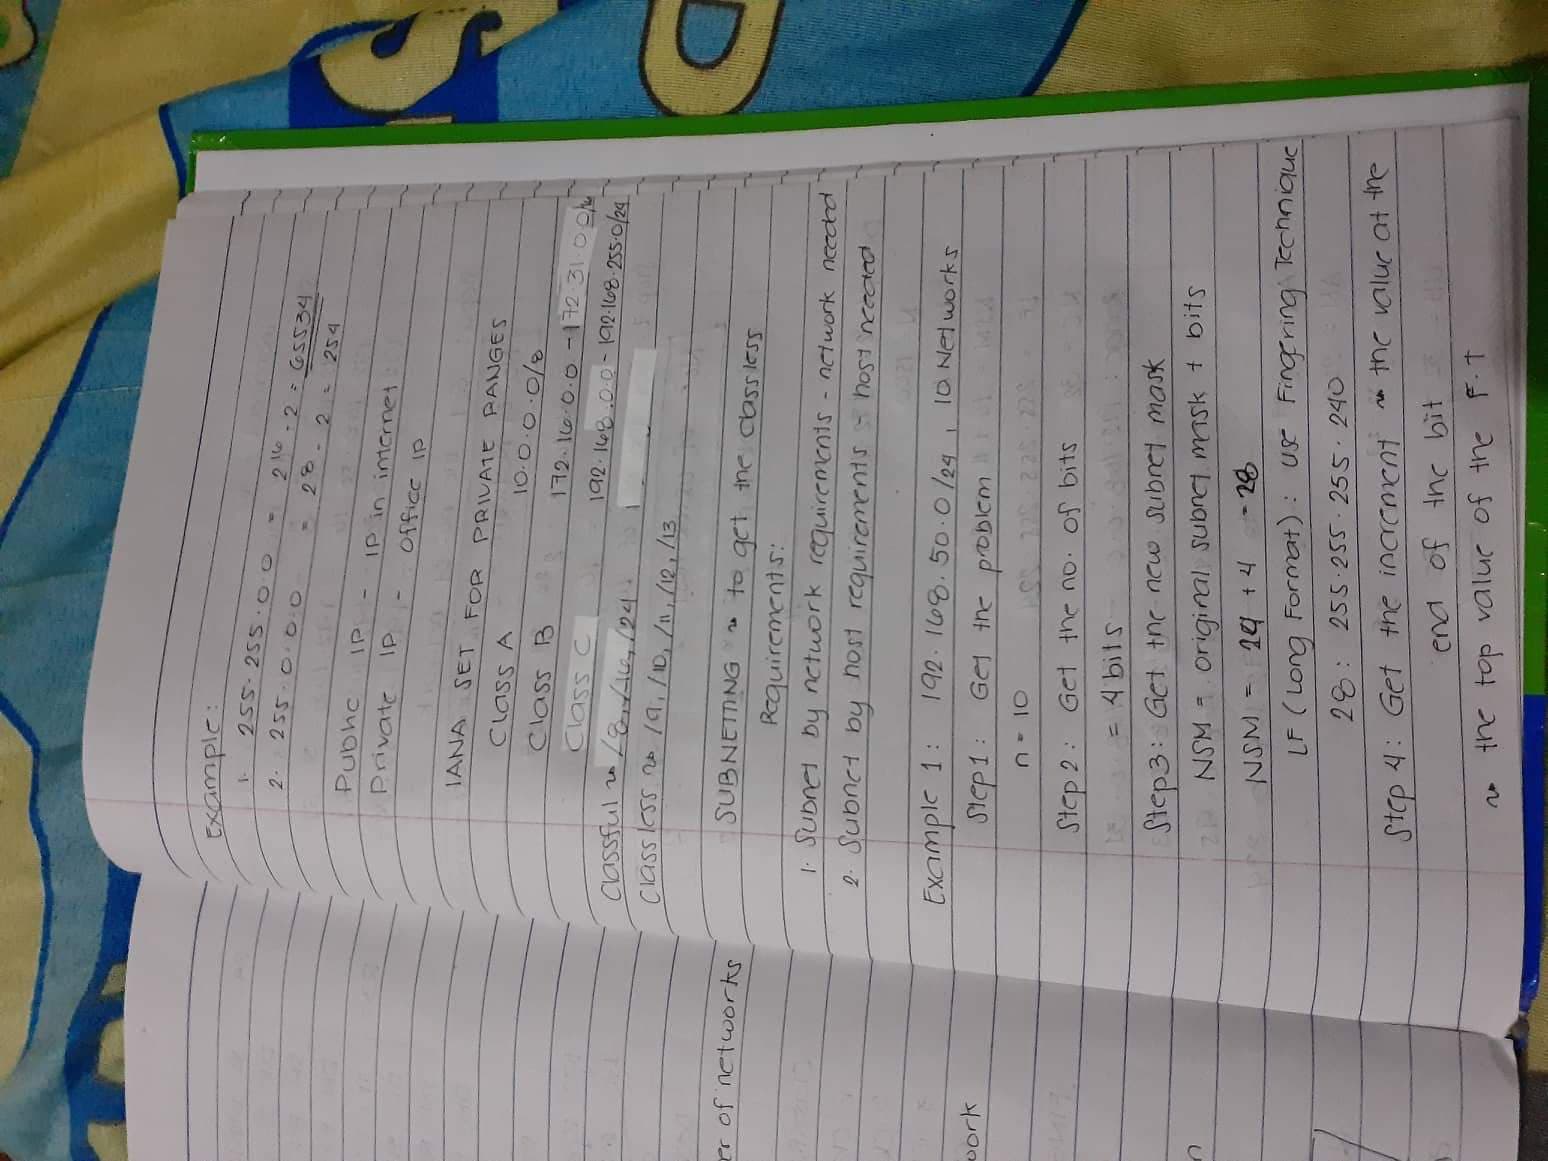 er of networks
work
n
Example:
1. 255.255.0.0 = 2^16 - 2 = 65534
2. 255.0.0.0 = 2^8 - 2 = 254
Public IP - IP in internet
Private IP - Office IP
IANA SET FOR PRIVATE RANGES
Class A 10.0.0.0/8
Class B 172.16.0.0 - 172.31.0.0
Class C 192.168.0.0 - 192.168.255.0/24
Classful ~ /8, /16, /24
Classless ~ /9, /10, /11, /12, /13
SUBNETTING ~ to get the classless
Requirements:
1. Subnet by network requirements - network needed
2. Subnet by host requirements - host needed
Example 1: 192.168.50.0/24, 10 Networks
Step 1: Get the problem
n = 10
Step 2: Get the no. of bits
= 4 bits
Step 3: Get the new subnet mask
NSM = original subnet mask + bits
NSM = 24 + 4 = 28
LF (Long Format): Use Fingering Technique
28: 255.255.255.240
Step 4: Get the increment ~ the value at the
end of the bit
~ the top value of the F.T